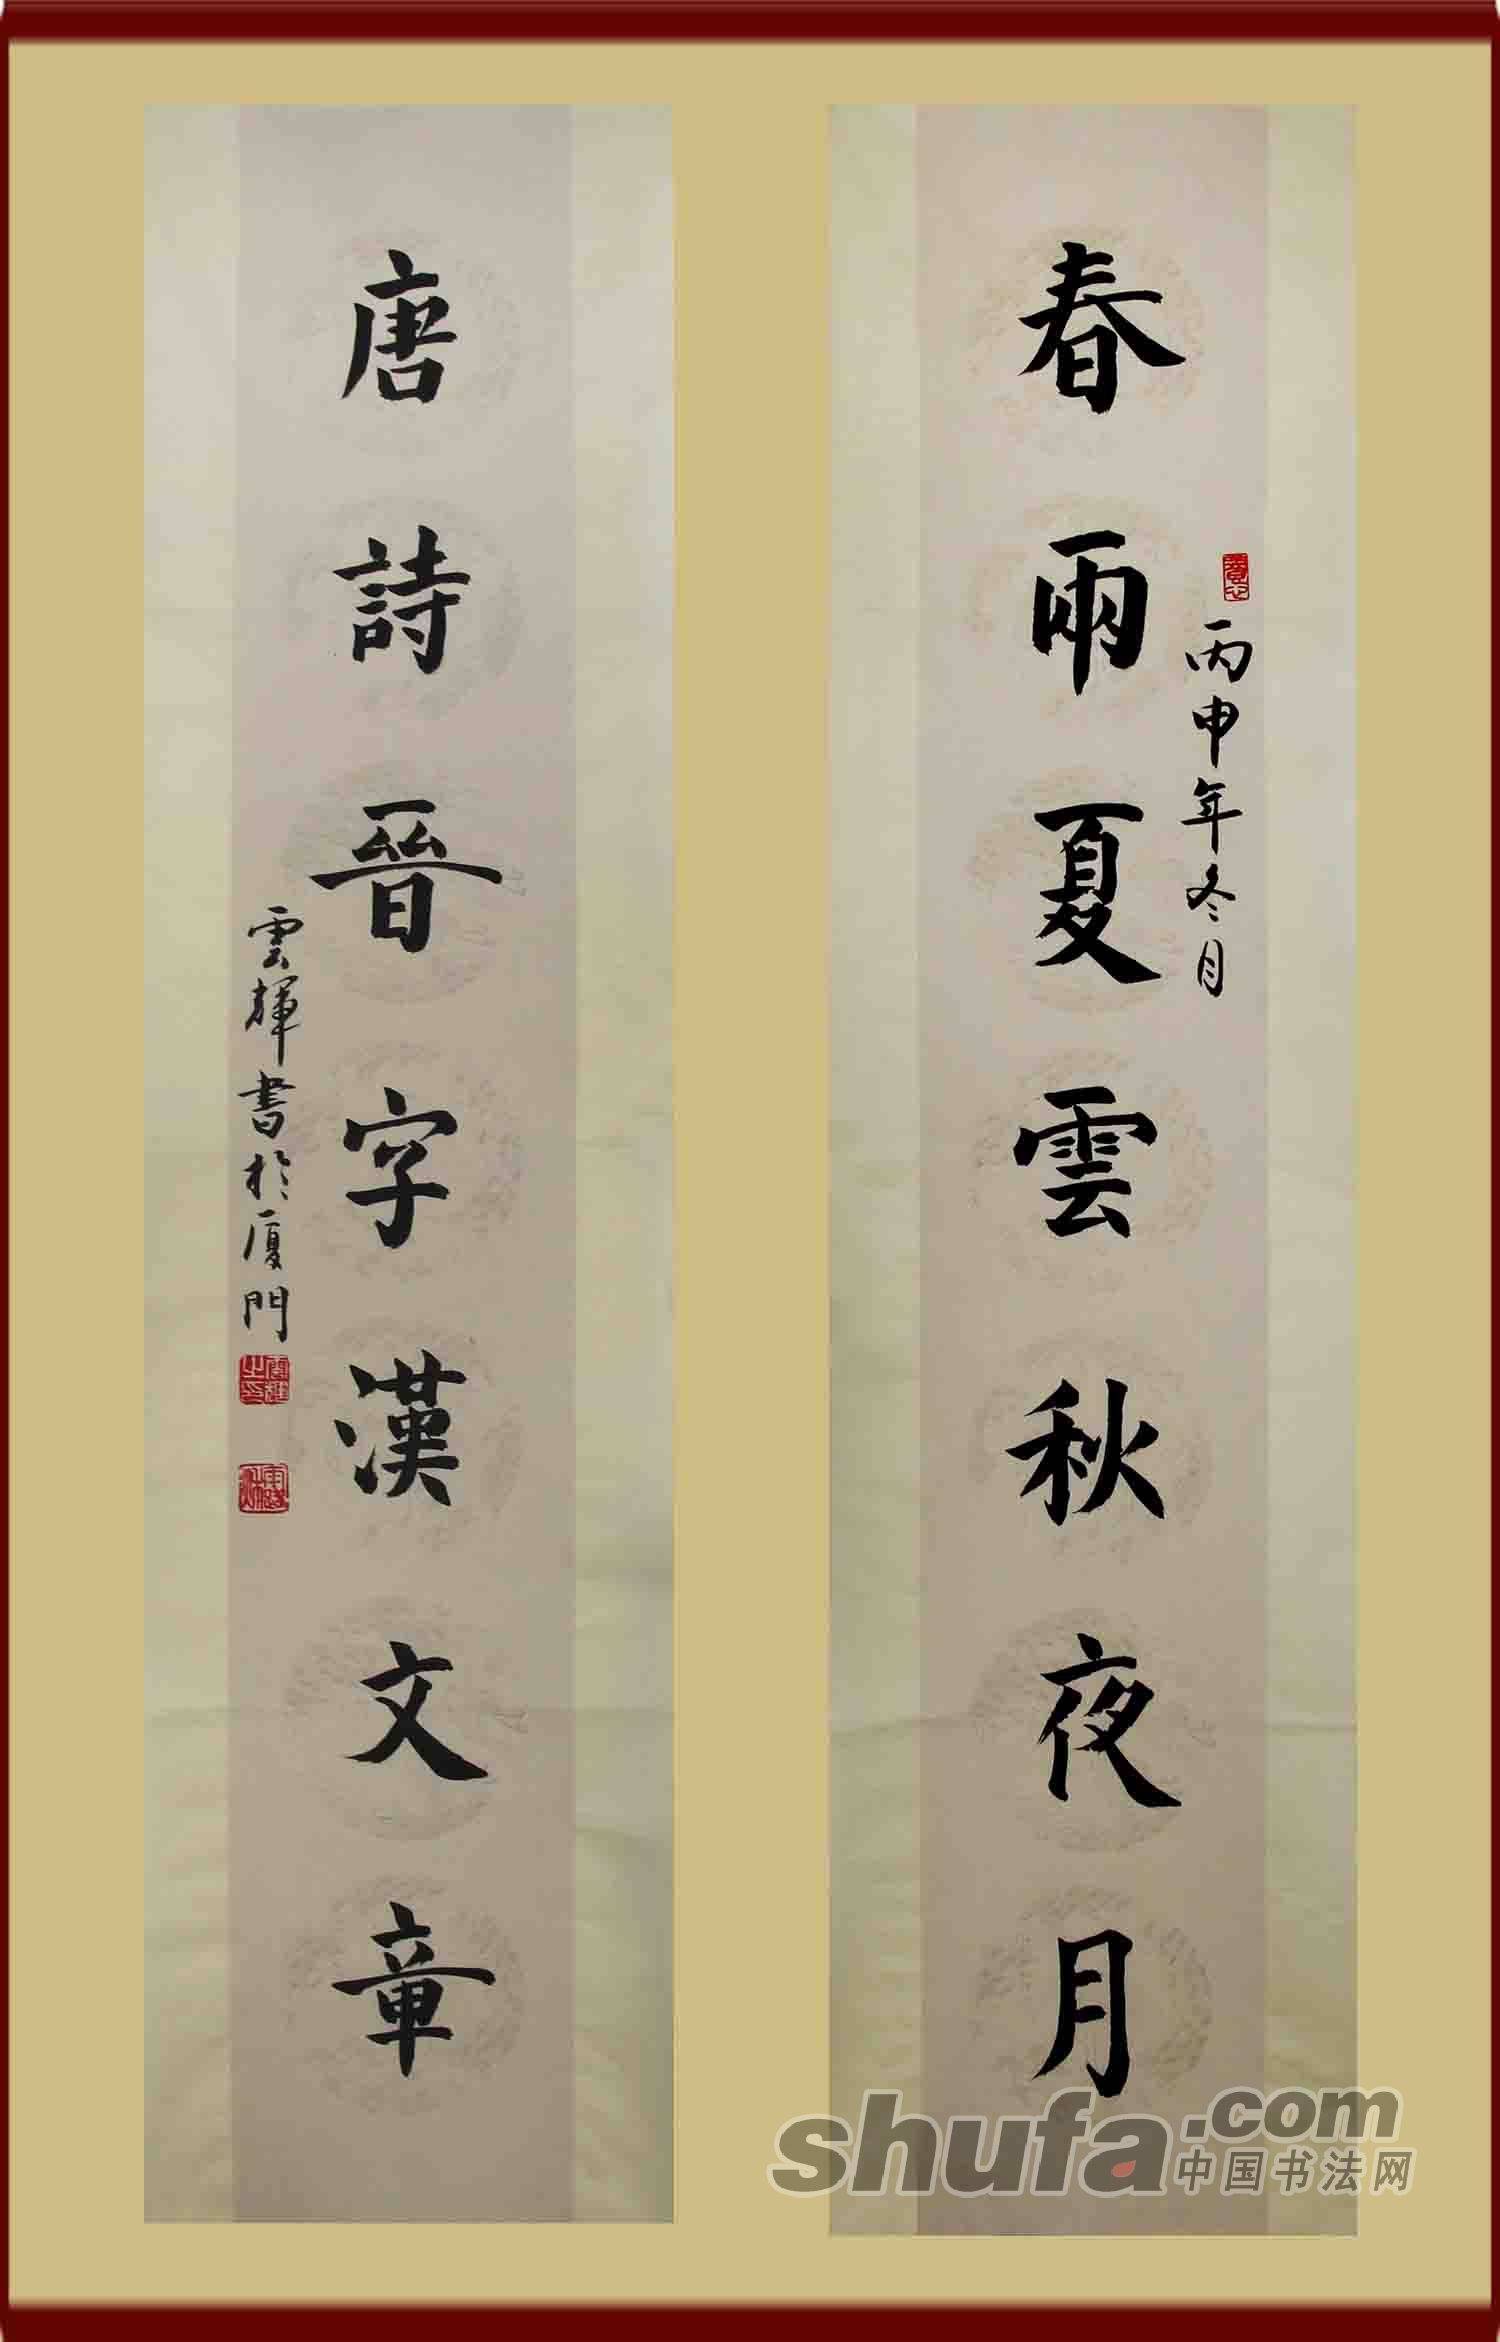 春雨夏雲秋夜月
丙申年冬月
唐詩晉字漢文章
雲輝書於厦門
shufa.com
中国书法网